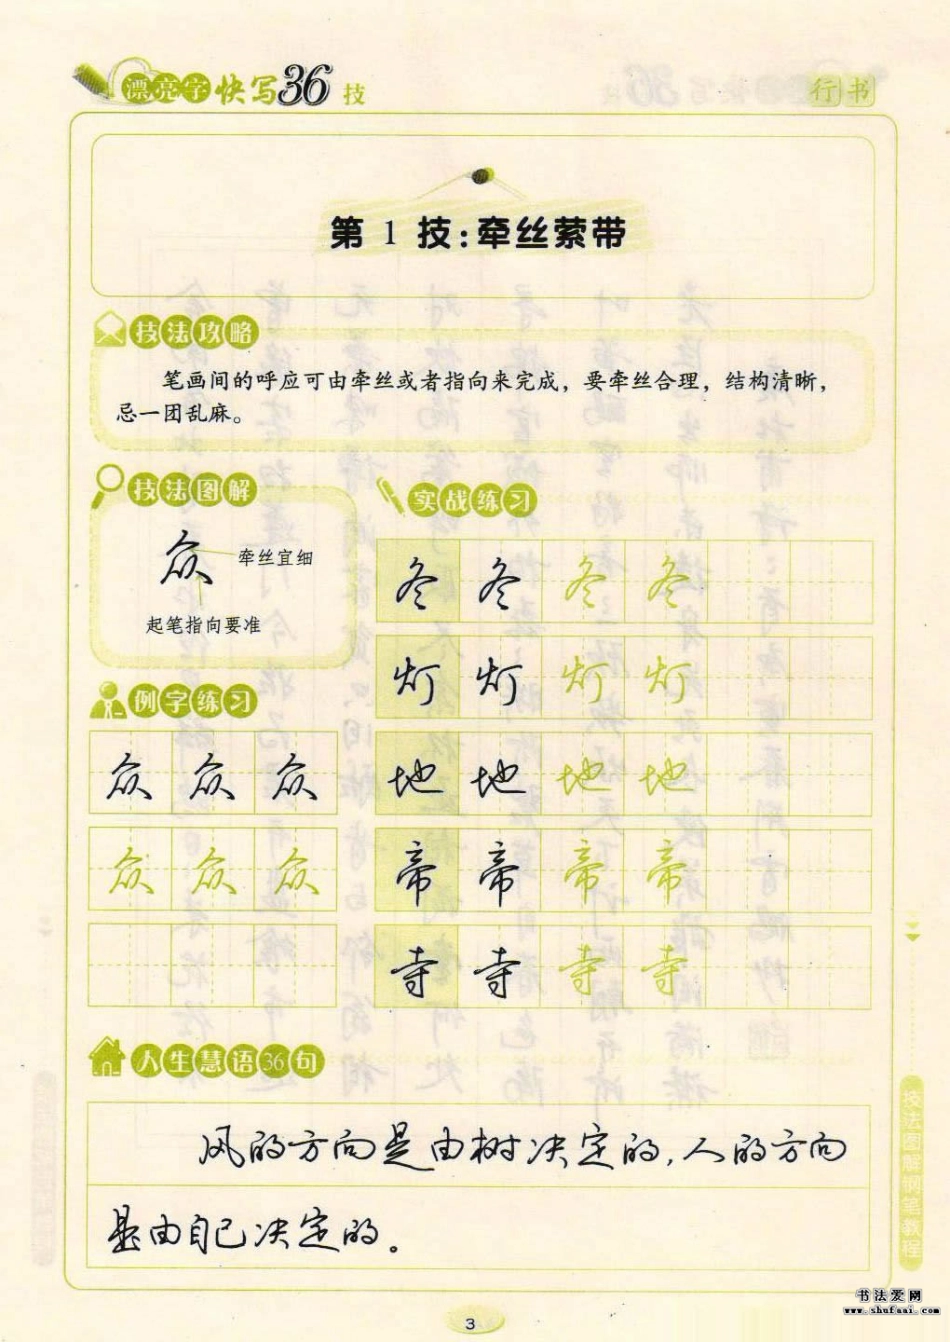 漂亮字快写36技
行书
第1技:牵丝萦带
技法攻略
笔画间的呼应可由牵丝或者指向来完成，要牵丝合理，结构清晰，
忌一团乱麻。
技法图解
众
牵丝宜细
起笔指向要准
实战练习
冬 冬 冬 冬
灯 灯 灯 灯
地 地 地 地
帝 帝 帝 帝
寺 寺 寺 寺
例字练习
众 众 众
众 众 众
人生慧语36句
风的方向是由树决定的，人的方向
是由自己决定的。
技法图解钢笔教程
3
书法爱网
www.shufaai.com